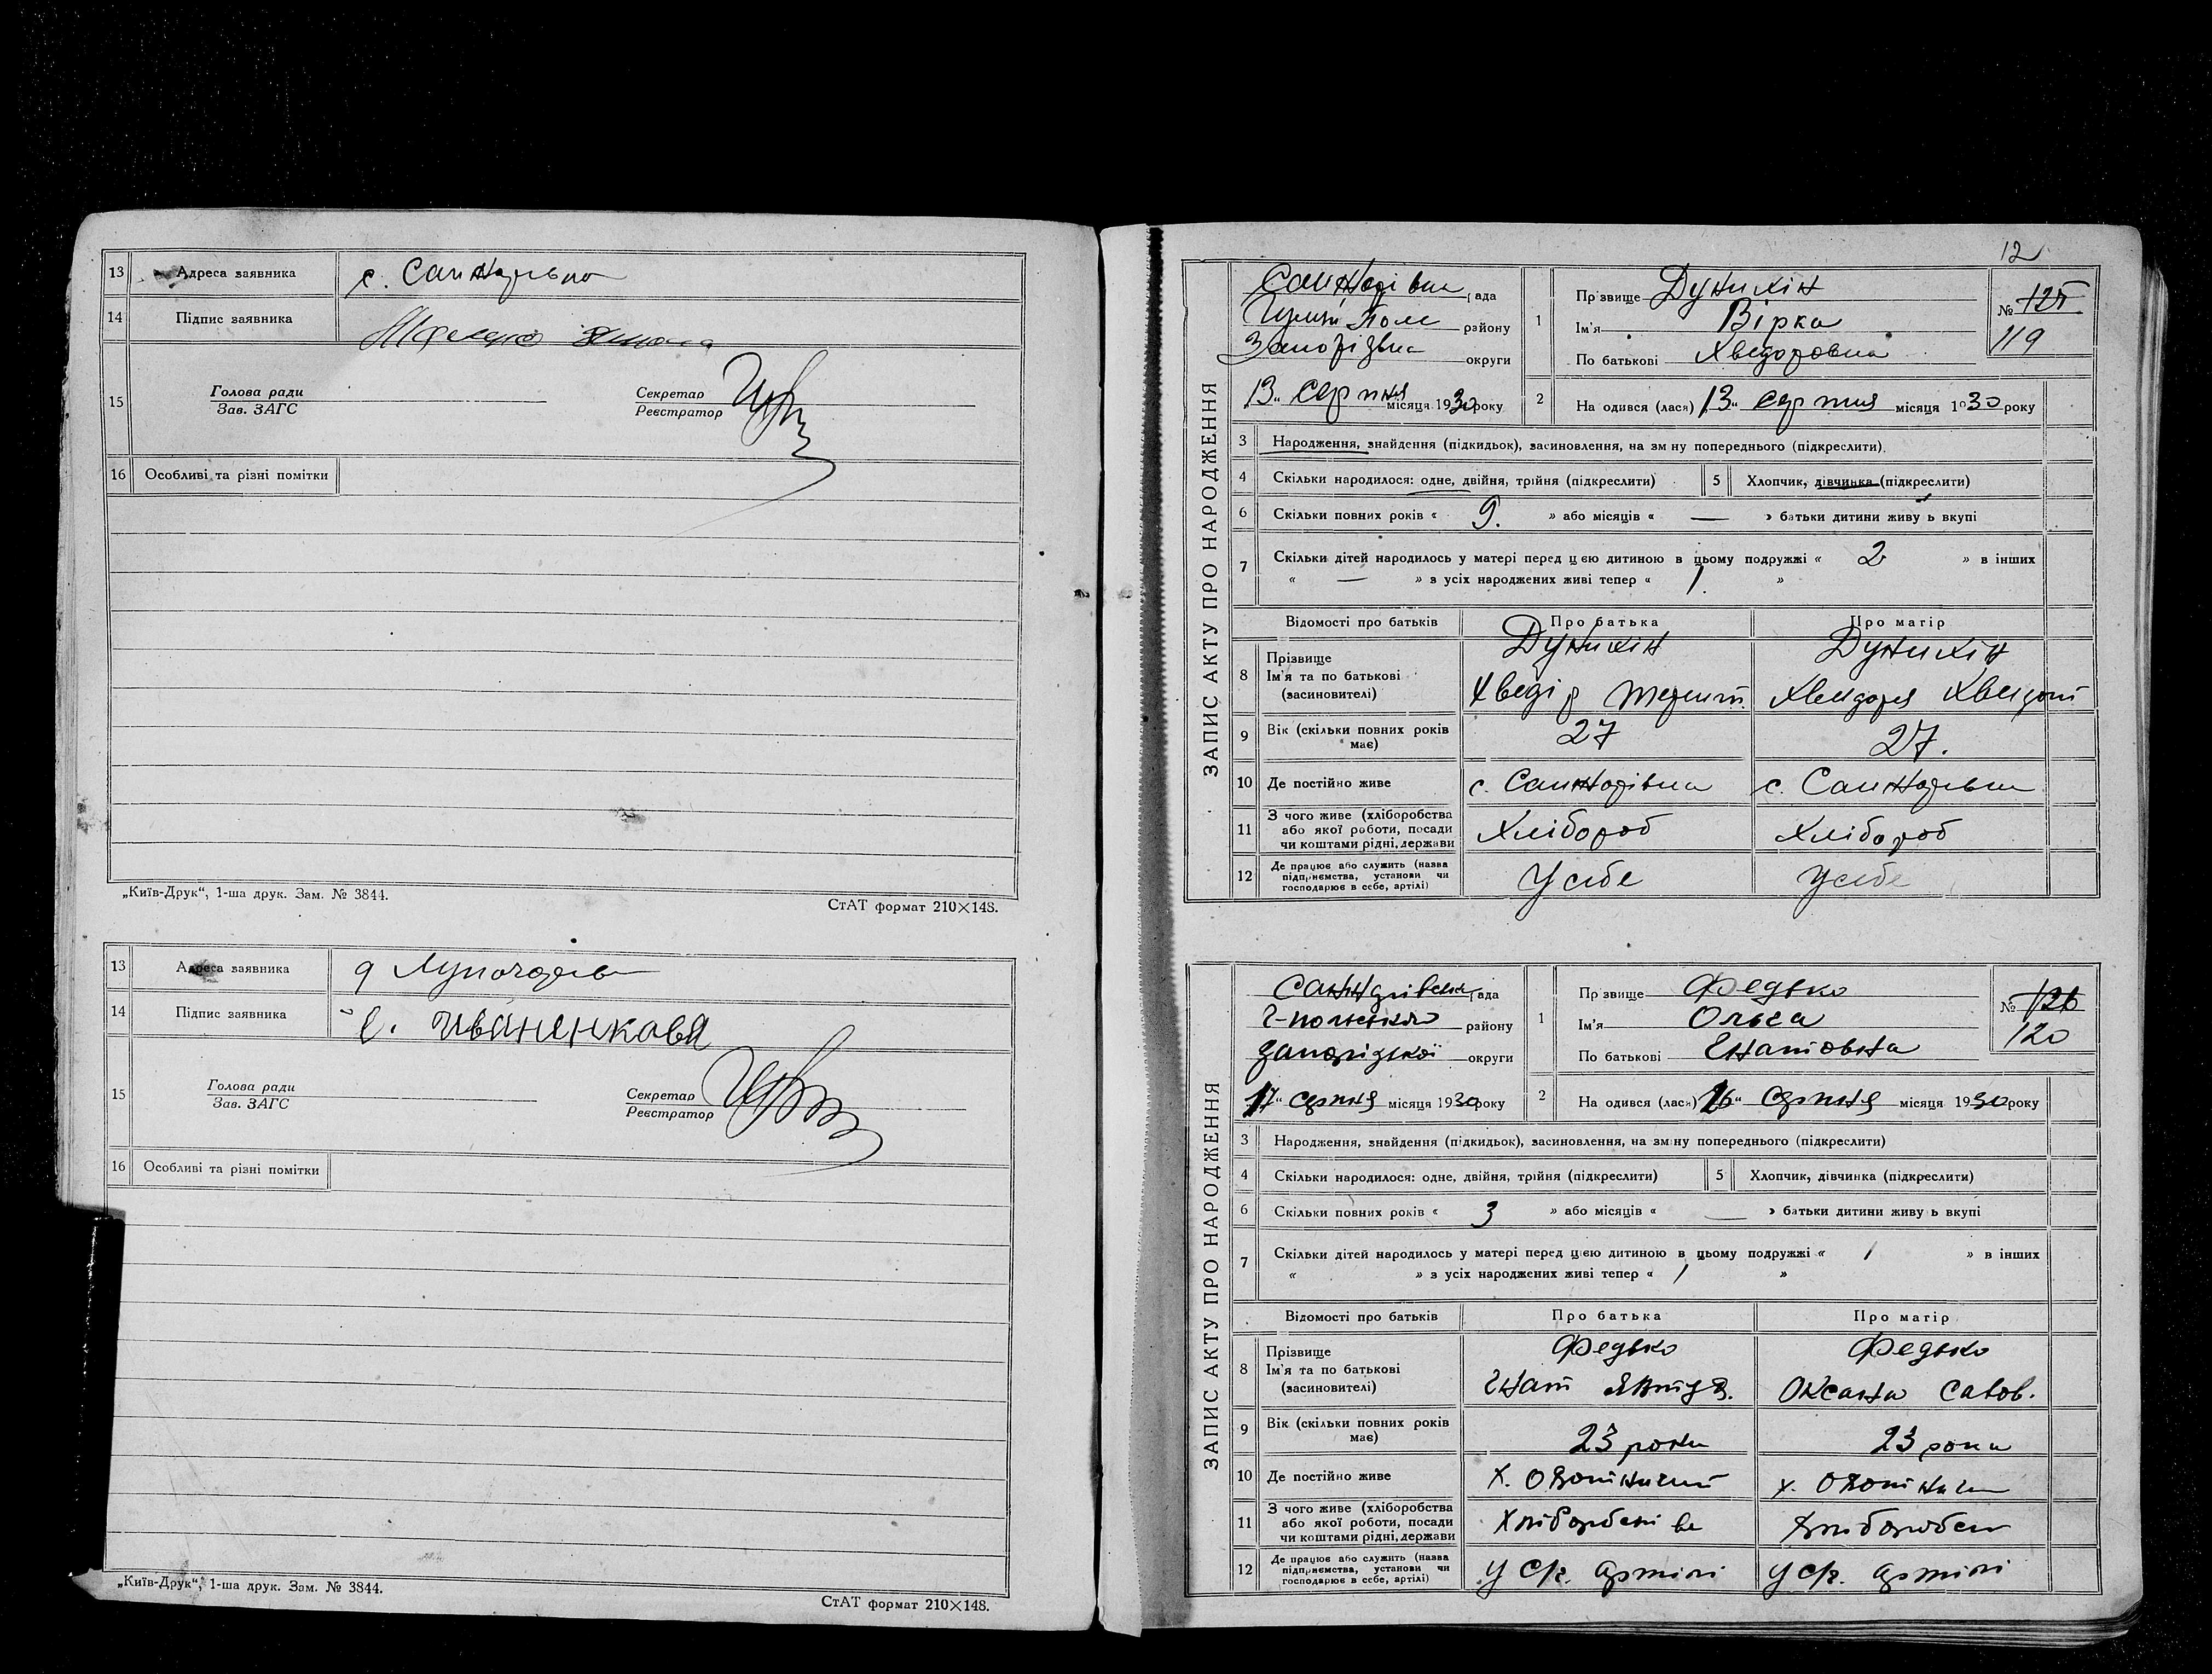 13 Адреса заявника с. Санжарівка
14 Підпис заявника
15 Голова ради
Зав. ЗАГС
Секретар
Реєстратор
16 Особливі та різні помітки
„Київ-Друк“, 1-ша друк. Зам. № 3844.
СтАТ формат 210×148.
13 Адреса заявника
14 Підпис заявника
15 Голова ради
Зав. ЗАГС
Секретар
Реєстратор
16 Особливі та різні помітки
„Київ-Друк“, 1-ша друк. Зам. № 3844.
СтАТ формат 210×148.
12
ЗАПИС АКТУ ПРО НАРОДЖЕННЯ
рада
району
округи
„13“ серпня місяця 1930 року
1 Прізвище
Ім'я Вірка
По батькові Хведоровна
№ 125
119
2 На одився (лася) „13“ серпня місяця 1930 року
3 Народження, знайдення (підкидьок), засиновлення, на зміну попереднього (підкреслити).
4 Скільки народилося: одне, двійня, трійня (підкреслити)
5 Хлопчик, дівчинка (підкреслити)
6 Скільки повних років « 9. » або місяців « — » батьки дитини живуть вкупі
7 Скільки дітей народилось у матері перед цією дитиною в цьому подружжі « 2 » в інших
« — » з усіх народжених живі тепер « 1 »
Відомості про батьків
Про батька
Про матір
8 Прізвище
Ім'я та по батькові
(засиновителі)
Хведір
9 Вік (скільки повних років має) 27 27.
10 Де постійно живе с. Санжарівка с. Санжарівка
11 З чого живе (хліборобства або якої роботи, посади чи коштами рідні, держави Хлібороб Хлібороб
12 Де працює або служить (назва підприємства, установи чи господарює в себе, артілі) У себе У себе
ЗАПИС АКТУ ПРО НАРОДЖЕННЯ
рада
району
Запорізької округи
„17“ серпня місяця 1930 року
1 Прізвище Федько
Ім'я Ольга
По батькові Гнатовна
№ 126
120
2 На одився (лася) „16“ серпня місяця 1930 року
3 Народження, знайдення (підкидьок), засиновлення, на зміну попереднього (підкреслити)
4 Скільки народилося: одне, двійня, трійня (підкреслити)
5 Хлопчик, дівчинка (підкреслити)
6 Скільки повних років « 3 » або місяців « — » батьки дитини живуть вкупі
7 Скільки дітей народилось у матері перед цією дитиною в цьому подружжі « 1 » в інших
« » з усіх народжених живі тепер « 1 »
Відомості про батьків
Про батька
Про матір
8 Прізвище
Ім'я та по батькові
(засиновителі)
Федько Федько
Гнат Оксана Савов.
9 Вік (скільки повних років має) 23 роки 23 роки
10 Де постійно живе х. х.
11 З чого живе (хліборобства або якої роботи, посади чи коштами рідні, держави
12 Де працює або служить (назва підприємства, установи чи господарює в себе, артілі) у с/г. артілі у с/г. артілі